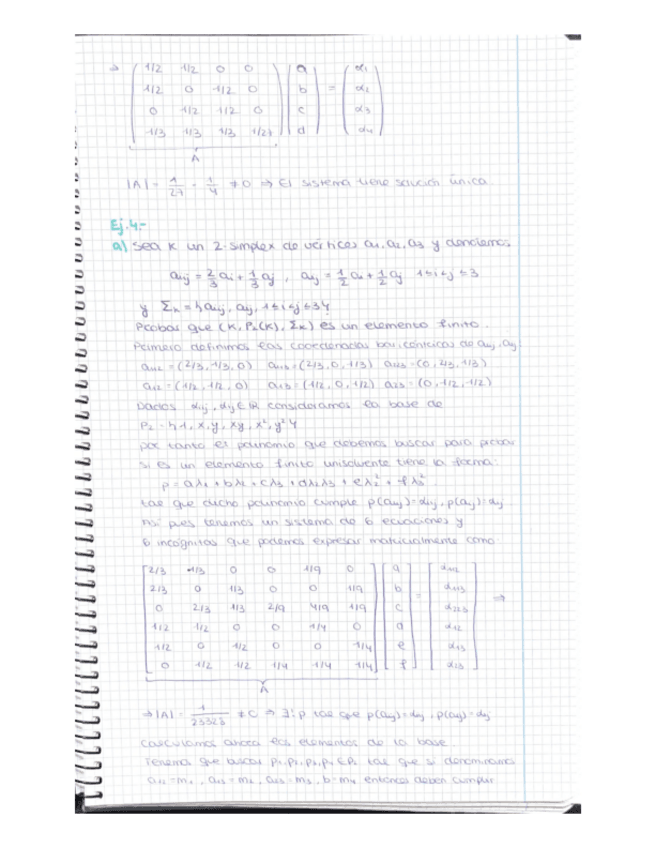 ⇒ [1/2 1/2 0 0] [a] = [α1]
[1/2 0 1/2 0] [b] [α2]
[0 1/2 1/2 0] [c] [α3]
[1/3 1/3 1/3 1/27] [d] [α4]
A
|A| = 1/27 · 1/4 ≠ 0 ⇒ El sistema tiene solución única
Ej.4.-
a) Sea K un 2-simplex de vértices a1, a2, a3 y denotemos
aiij = 2/3 ai + 1/3 aj , aij = 1/2 ai + 1/2 aj 1≤i<j≤3
y Σk = {aiij, aij, 1≤i<j≤3}
Probar que (K, P2(K), Σk) es un elemento finito.
Primero definimos las coordenadas baricéntricas de aiij, aij
a112 = (2/3, 1/3, 0) a113 = (2/3, 0, 1/3) a223 = (0, 2/3, 1/3)
a12 = (1/2, 1/2, 0) a13 = (1/2, 0, 1/2) a23 = (0, 1/2, 1/2)
Dados αiij, αij ∈ ℝ consideramos la base de
P2 = {1, x, y, xy, x², y²}
por tanto el polinomio que debemos buscar para probar
si es un elemento finito unisolvente tiene la forma:
p = aλ1 + bλ2 + cλ3 + dλ2λ3 + eλ2² + fλ3²
tal que dicho polinomio cumple p(aiij) = αiij, p(aij) = αij
Así pues tenemos un sistema de 6 ecuaciones y
6 incógnitas que podemos expresar matricialmente como
[2/3 1/3 0 0 1/9 0] [a] = [α112]
[2/3 0 1/3 0 0 1/9] [b] [α113]
[0 2/3 1/3 2/9 4/9 1/9] [c] [α223] ⇒
[1/2 1/2 0 0 1/4 0] [d] [α12]
[1/2 0 1/2 0 0 1/4] [e] [α13]
[0 1/2 1/2 1/4 1/4 1/4] [f] [α23]
A
⇒ |A| = 1/23323 ≠ 0 ⇒ ∃! p tal que p(aiij) = αiij, p(aij) = αij
Calculamos ahora los elementos de la base.
Tenemos que buscar p1, p2, p3, p4 ∈ P2 tal que si denominamos
a12 = m1, a13 = m2, a23 = m3, b = m4 entonces deben cumplir